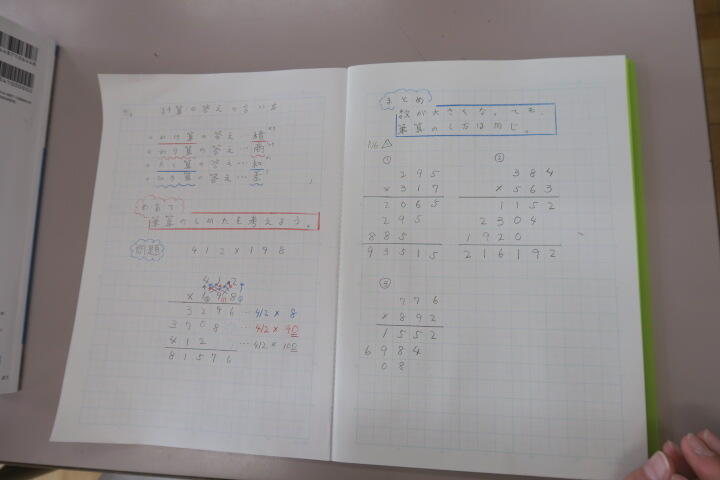 計算の答えの言い方
・かけ算の答え…積
・わり算の答え…商
・たし算の答え…和
・ひき算の答え…差
めあて
筆算のしかたを考えよう。
問題
412×198
412
×198
3296…412×8
3708…412×90
412…412×100
81576
まとめ
数が大きくなっても、
筆算のし方は同じ。
①
295
×317
2065
295
885
93515
②
384
×563
1152
2304
1920
216192
③
776
×892
1552
6984
08